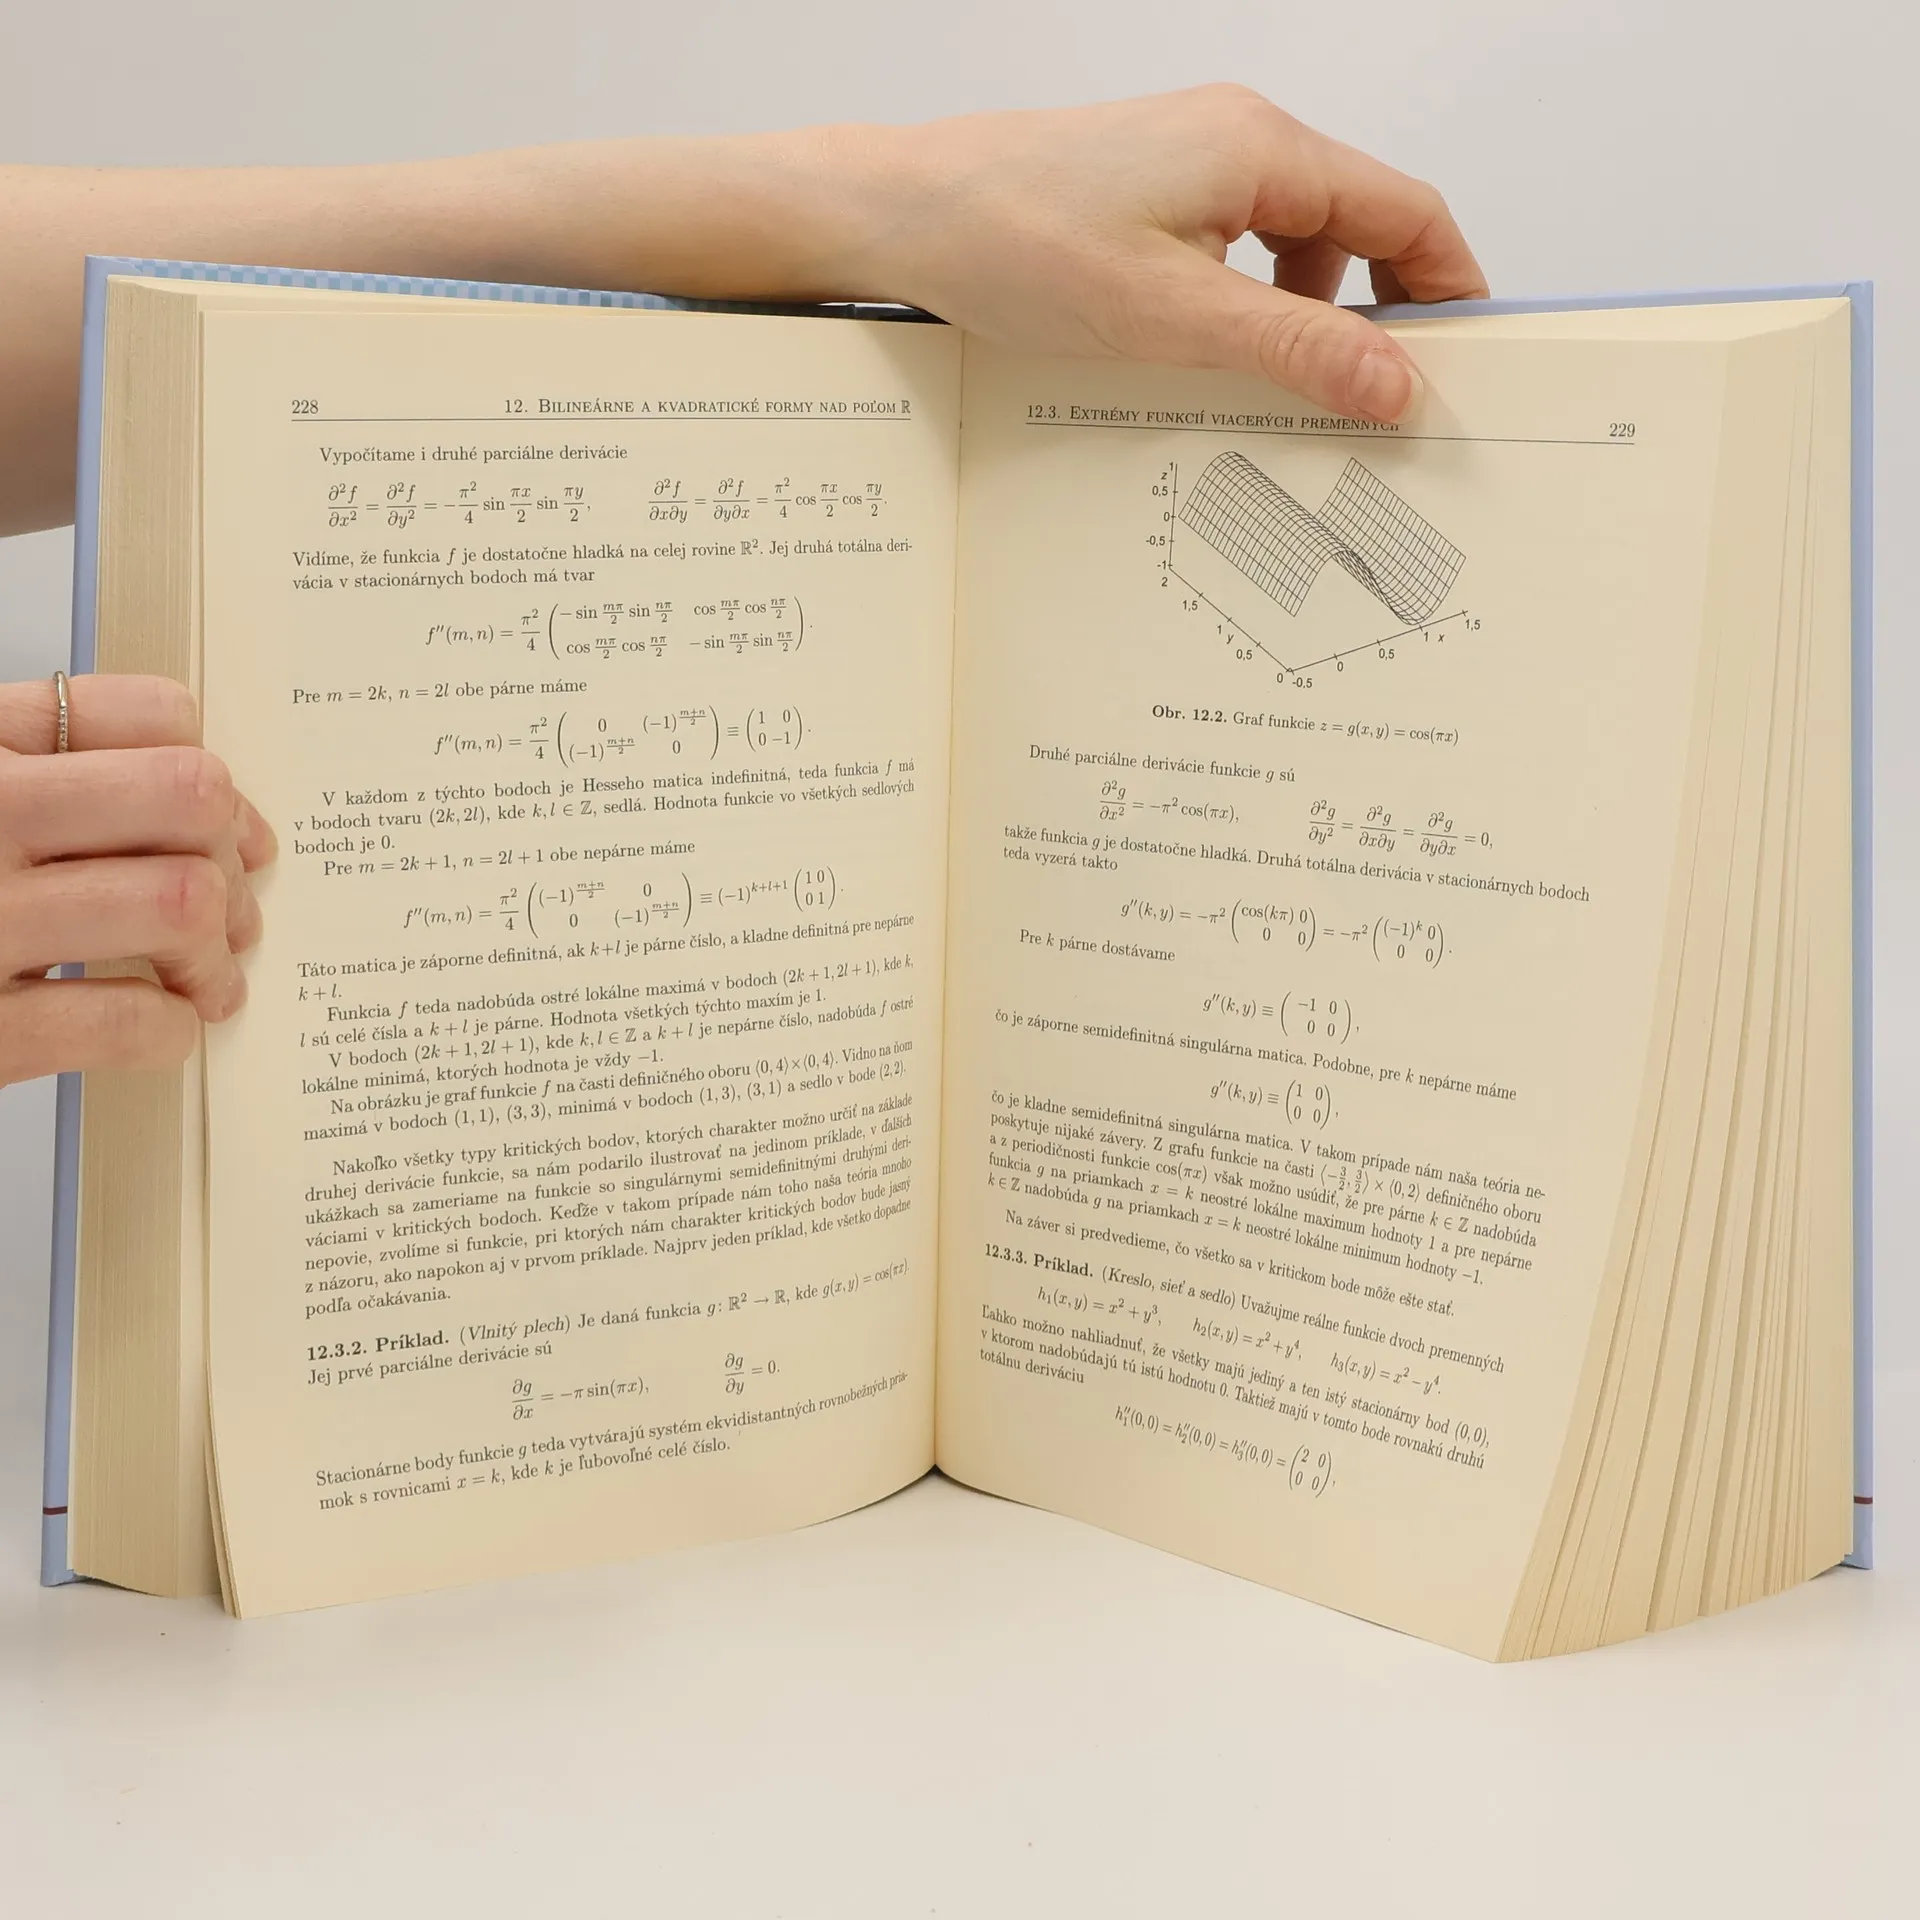 228 12. BILINEÁRNE A KVADRATICKÉ FORMY NAD POĽOM ℝ
Vypočítame i druhé parciálne derivácie
∂²f/∂x² = ∂²f/∂y² = −π²/4 sin πx/2 sin πy/2, ∂²f/∂x∂y = ∂²f/∂y∂x = π²/4 cos πx/2 cos πy/2.
Vidíme, že funkcia f je dostatočne hladká na celej rovine ℝ². Jej druhá totálna deri-
vácia v stacionárnych bodoch má tvar
f″(m, n) = π²/4 (− sin mπ/2 sin nπ/2 cos mπ/2 cos nπ/2
cos mπ/2 cos nπ/2 − sin mπ/2 sin nπ/2).
Pre m = 2k, n = 2l obe párne máme
f″(m, n) = π²/4 (0 (−1)^((m+n)/2)
(−1)^((m+n)/2) 0) ≡ (1 0
0 −1).
V každom z týchto bodoch je Hesseho matica indefinitná, teda funkcia f má
v bodoch tvaru (2k, 2l), kde k, l ∈ ℤ, sedlá. Hodnota funkcie vo všetkých sedlových
bodoch je 0.
Pre m = 2k + 1, n = 2l + 1 obe nepárne máme
f″(m, n) = π²/4 ((−1)^((m+n)/2) 0
0 (−1)^((m+n)/2)) ≡ (−1)^(k+l+1) (1 0
0 1).
Táto matica je záporne definitná, ak k+l je párne číslo, a kladne definitná pre nepárne
k + l.
Funkcia f teda nadobúda ostré lokálne maximá v bodoch (2k + 1, 2l + 1), kde k,
l sú celé čísla a k + l je párne. Hodnota všetkých týchto maxím je 1.
V bodoch (2k + 1, 2l + 1), kde k, l ∈ ℤ a k + l je nepárne číslo, nadobúda f ostré
lokálne minimá, ktorých hodnota je vždy −1.
Na obrázku je graf funkcie f na časti definičného oboru ⟨0, 4⟩×⟨0, 4⟩. Vidno na ňom
maximá v bodoch (1, 1), (3, 3), minimá v bodoch (1, 3), (3, 1) a sedlo v bode (2, 2).
Nakoľko všetky typy kritických bodov, ktorých charakter možno určiť na základe
druhej derivácie funkcie, sa nám podarilo ilustrovať na jedinom príklade, v ďalších
ukážkach sa zameriame na funkcie so singulárnymi semidefinitnými druhými deri-
váciami v kritických bodoch. Keďže v takom prípade nám toho naša teória mnoho
nepovie, zvolíme si funkcie, pri ktorých nám charakter kritických bodov bude jasný
z názoru, ako napokon aj v prvom príklade. Najprv jeden príklad, kde všetko dopadne
podľa očakávania.
12.3.2. Príklad. (Vlnitý plech) Je daná funkcia g: ℝ² → ℝ, kde g(x, y) = cos(πx).
Jej prvé parciálne derivácie sú
∂g/∂x = −π sin(πx), ∂g/∂y = 0.
Stacionárne body funkcie g teda vytvárajú systém ekvidistantných rovnobežných pria-
mok s rovnicami x = k, kde k je ľubovoľné celé číslo.
12.3. EXTRÉMY FUNKCIÍ VIACERÝCH PREMENNÝCH 229
z 1
0,5
0
-0,5
-1
2
1,5
1
y
0,5
0
-0.5
0
0,5
1
x
1,5
Obr. 12.2. Graf funkcie z = g(x, y) = cos(πx)
Druhé parciálne derivácie funkcie g sú
∂²g/∂x² = −π² cos(πx), ∂²g/∂y² = ∂²g/∂x∂y = ∂²g/∂y∂x = 0,
takže funkcia g je dostatočne hladká. Druhá totálna derivácia v stacionárnych bodoch
teda vyzerá takto
g″(k, y) = −π² (cos(kπ) 0
0 0) = −π² ((−1)ᵏ 0
0 0).
Pre k párne dostávame
g″(k, y) ≡ (−1 0
0 0),
čo je záporne semidefinitná singulárna matica. Podobne, pre k nepárne máme
g″(k, y) ≡ (1 0
0 0),
čo je kladne semidefinitná singulárna matica. V takom prípade nám naša teória ne-
poskytuje nijaké závery. Z grafu funkcie na časti ⟨−3/2, 3/2⟩ × ⟨0, 2⟩ definičného oboru
a z periodičnosti funkcie cos(πx) však možno usúdiť, že pre párne k ∈ ℤ nadobúda
funkcia g na priamkach x = k neostré lokálne maximum hodnoty 1 a pre nepárne
k ∈ ℤ nadobúda g na priamkach x = k neostré lokálne minimum hodnoty −1.
Na záver si predvedieme, čo všetko sa v kritickom bode môže ešte stať.
12.3.3. Príklad. (Kreslo, sieť a sedlo) Uvažujme reálne funkcie dvoch premenných
h₁(x, y) = x² + y³, h₂(x, y) = x² + y⁴, h₃(x, y) = x² − y⁴.
Ľahko možno nahliadnuť, že všetky majú jediný a ten istý stacionárny bod (0, 0),
v ktorom nadobúdajú tú istú hodnotu 0. Taktiež majú v tomto bode rovnakú druhú
totálnu deriváciu
h₁″(0, 0) = h₂″(0, 0) = h₃″(0, 0) = (2 0
0 0),